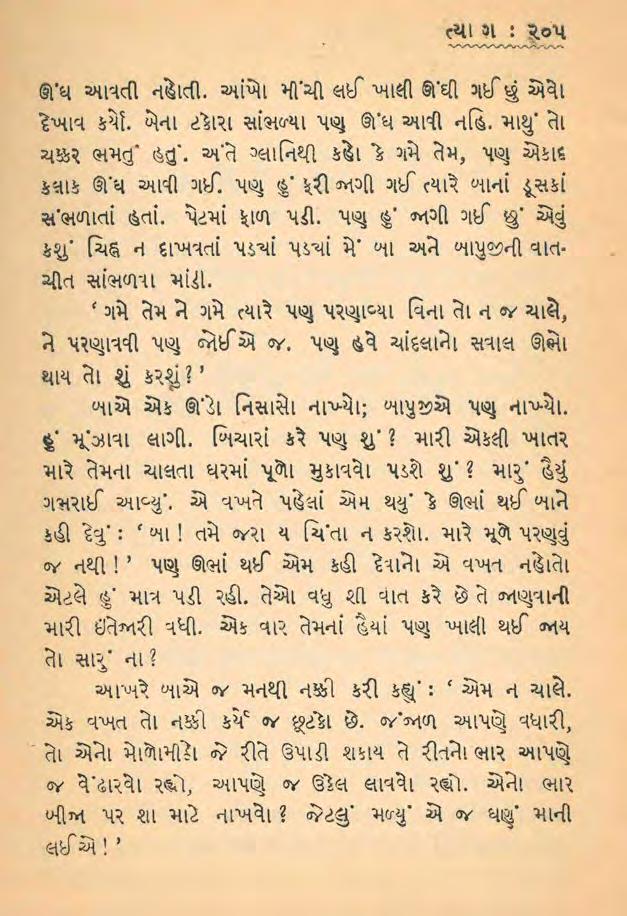 ત્યાગ : ૨૦૫
ઊંઘ આવતી નહોતી. આંખો મીંચી લઈ ખાલી ઊંઘી ગઈ છું એવો
દેખાવ કર્યો. બેના ટકોરા સાંભળ્યા પણ ઊંઘ આવી નહિ. માથું તો
ચક્કર ભમતું હતું. અંતે ગ્લાનિથી કહો કે ગમે તેમ, પણ એકાદ
કલાક ઊંઘ આવી ગઈ. પણ હું ફરી જાગી ગઈ ત્યારે બાનાં ડૂસકાં
સંભળાતાં હતાં. પેટમાં ફાળ પડી. પણ હું જાગી ગઈ છું એવું
કશું ચિહ્ન ન દાખવતાં પડ્યાં પડ્યાં મેં બા અને બાપુજીની વાત-
ચીત સાંભળવા માંડી.
‘ ગમે તેમ ને ગમે ત્યારે પણ પરણાવ્યા વિના તો ન જ ચાલે,
ને પરણાવવી પણ જોઈએ જ. પણ હવે ચાંદલાનો સવાલ ઊભો
થાય તો શું કરશું ? ’
બાએ એક ઊંડો નિસાસો નાખ્યો; બાપુજીએ પણ નાખ્યો.
હું મૂંઝાવા લાગી. બિચારાં કરે પણ શું ? મારી એકલી ખાતર
મારે તેમના ચાલતા ઘરમાં પૂળો મુકાવવો પડશે શું ? મારું હૈયું
ગભરાઈ આવ્યું. એ વખતે પહેલાં એમ થયું કે ઊભાં થઈ બાને
કહી દેવું : ‘ બા ! તમે જરા ય ચિંતા ન કરશો. મારે મૂળે પરણવું
જ નથી ! ’ પણ ઊભાં થઈ એમ કહી દેવાનો એ વખત નહોતો
એટલે હું માત્ર પડી રહી. તેઓ વધુ શી વાત કરે છે તે જાણવાની
મારી ઇંતેજારી વધી. એક વાર તેમનાં હૈયાં પણ ખાલી થઈ જાય
તો સારું ના ?
આખરે બાએ જ મનથી નક્કી કરી કહ્યું : ‘ એમ ન ચાલે.
એક વખત તો નક્કી કર્યે જ છૂટકો છે. જંજાળ આપણે વધારી,
તો એનો મોળોમીઠો જે રીતે ઉપાડી શકાય તે રીતનો ભાર આપણે
જ વેંઢારવો રહ્યો, આપણે જ ઉકેલ લાવવો રહ્યો. એનો ભાર
બીજા પર શા માટે નાખવો ? જેટલું મળ્યું એ જ ઘણું માની
લઈએ ! ’